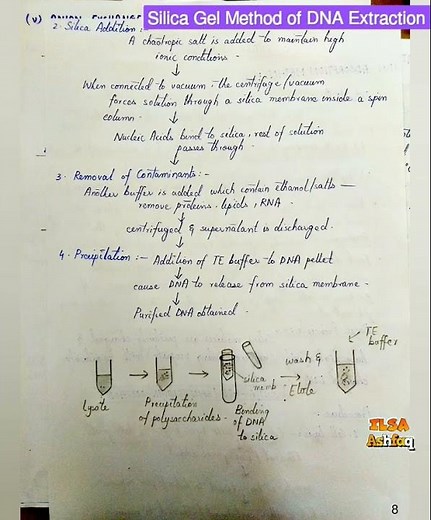 Silica Gel Method of DNA Extraction
(v)
2. Silica Addition:
A chaotropic salt is added to maintain high
ionic conditions.
When connected to vacuum, the centrifuge / vacuum
forces solution through a silica membrane inside a spin
column.
Nucleic Acids bind to silica, rest of solution
passes through.
3. Removal of Contaminants:-
Another buffer is added which contain ethanol/salts —
remove proteins, lipids, RNA.
centrifuged & supernatant is discharged.
4. Precipitation:- Addition of TE buffer to DNA pellet
cause DNA to release from silica membrane.
Purified DNA obtained.
TE
buffer
wash &
Elute
silica
memb
Lysate
Precipitation
of polysaccharides.
Bonding
of DNA
to silica
ILSA
Ashfaq
8